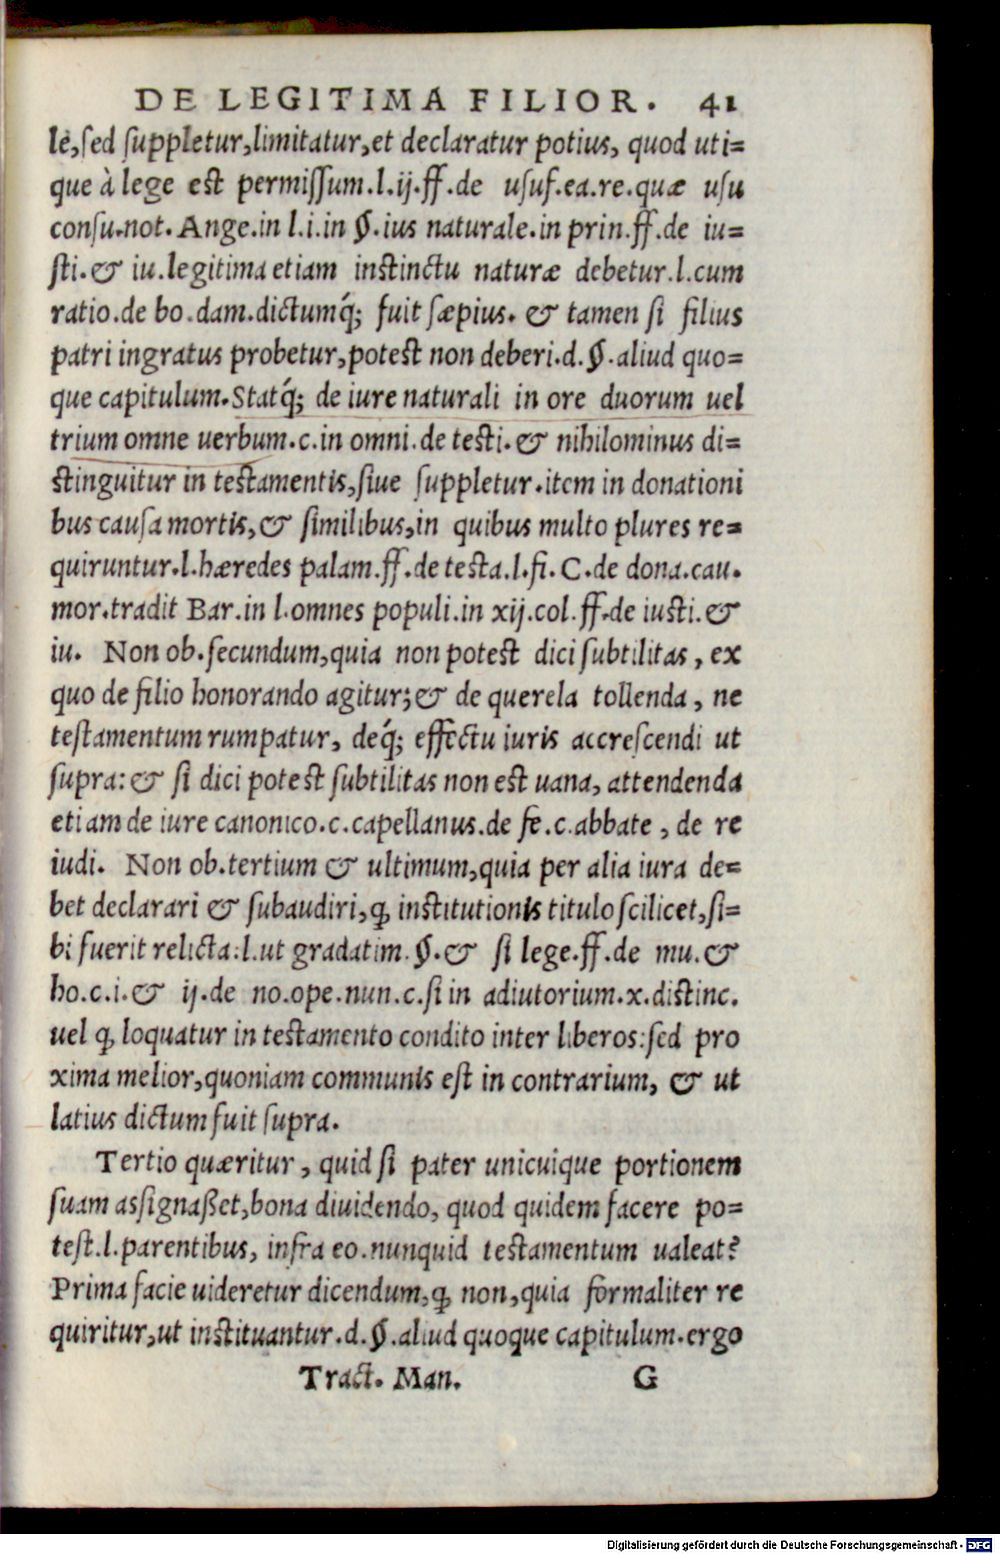 DE LEGITIMA FILIOR. 41
le, sed suppletur, limitatur, et declaratur potius, quod uti=
que à lege est permissum.l.ij.ff.de usuf.ea.re.quæ usu
consu.not. Ange.in l.i.in §.ius naturale.in prin.ff.de iu=
sti.& iu.legitima etiam instinctu naturæ debetur.l.cum
ratio.de bo.dam.dictumq́; fuit sæpius. & tamen si filius
patri ingratus probetur, potest non deberi.d.§.aliud quo=
que capitulum.Statq́; de iure naturali in ore duorum uel
trium omne uerbum.c.in omni.de testi.& nihilominus di=
stinguitur in testamentis, siue suppletur.item in donationi
bus causa mortis, & similibus, in quibus multo plures re=
quiruntur.l.hæredes palam.ff.de testa.l.fi.C.de dona.cau.
mor.tradit Bar.in l.omnes populi.in xij.col.ff.de iusti.&
iu. Non ob.secundum, quia non potest dici subtilitas, ex
quo de filio honorando agitur; & de querela tollenda, ne
testamentum rumpatur, deq́; effectu iuris accrescendi ut
supra: & si dici potest subtilitas non est uana, attendenda
etiam de iure canonico.c.capellanus.de fe.c.abbate, de re
iudi. Non ob.tertium & ultimum, quia per alia iura de=
bet declarari & subaudiri, ꝙ institutionis titulo scilicet, si=
bi fuerit relicta:l.ut gradatim.§.& si lege.ff.de mu.&
ho.c.i.& ij.de no.ope.nun.c.si in adiutorium.x.distinc.
uel ꝙ loquatur in testamento condito inter liberos: sed pro
xima melior, quoniam communis est in contrarium, & ut
latius dictum fuit supra.
Tertio quæritur, quid si pater unicuique portionem
suam assignaßet, bona diuidendo, quod quidem facere po=
test.l.parentibus, infra eo.nunquid testamentum ualeat?
Prima facie uideretur dicendum, ꝙ non, quia formaliter re
quiritur, ut instituantur.d.§.aliud quoque capitulum.ergo
Tract. Man. G
Digitalisierung gefördert durch die Deutsche Forschungsgemeinschaft - DFG